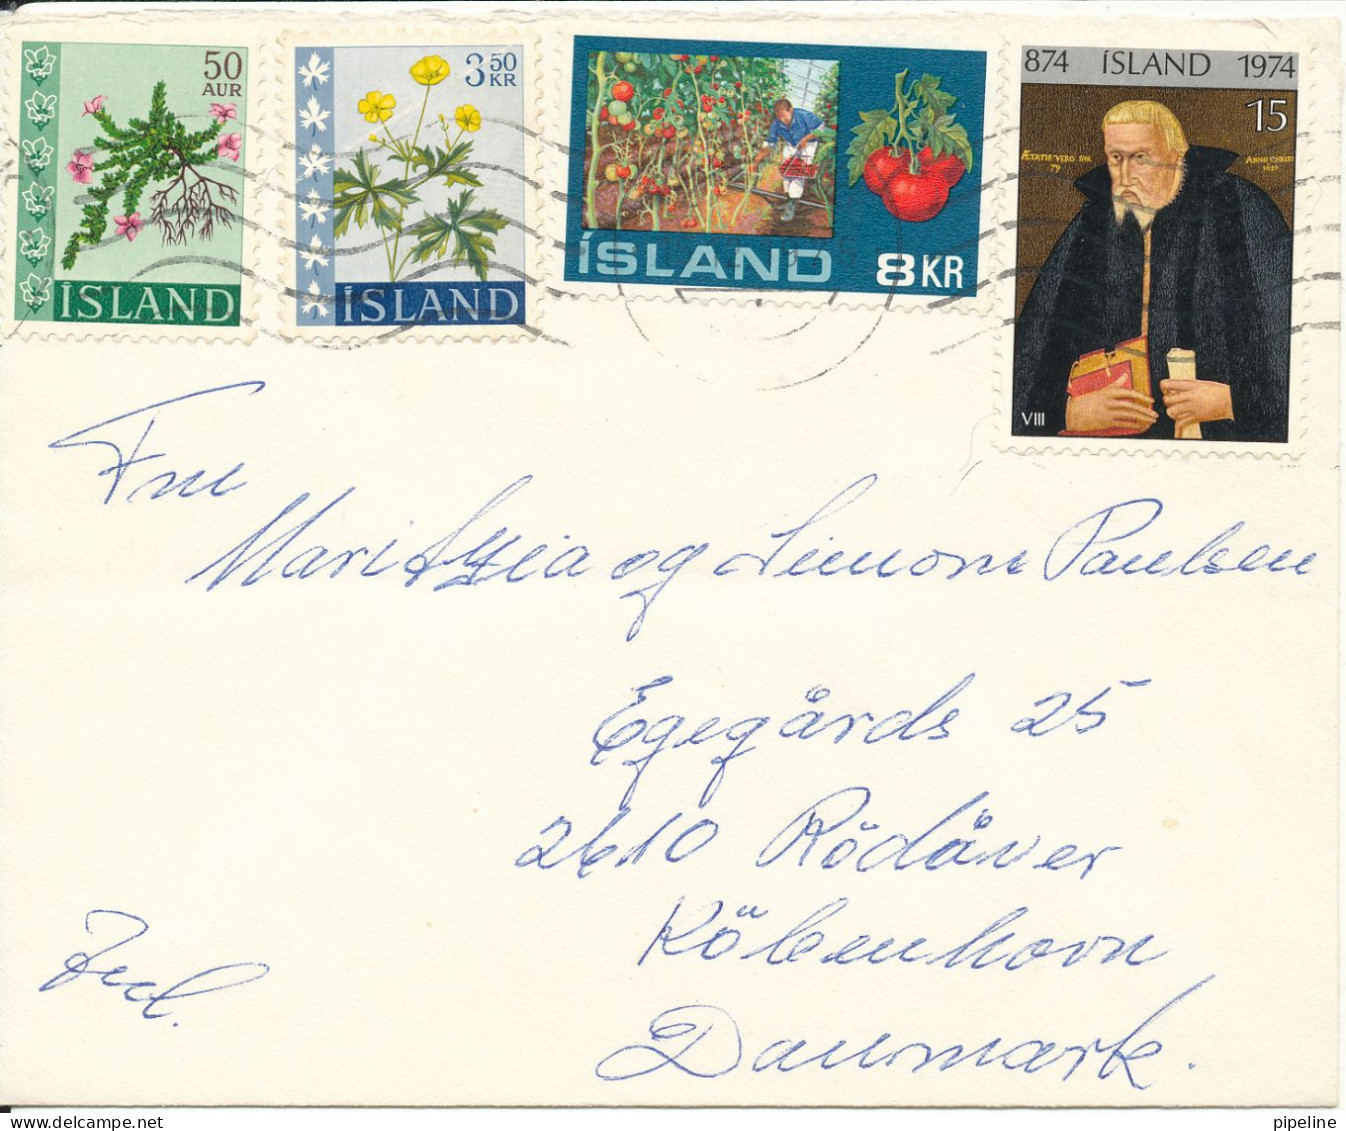 50
AUR
ÍSLAND
3 50
KR
ÍSLAND
ÍSLAND
8KR
874 ÍSLAND 1974
15
ÆTATIS VERO SVÆ
79
ANNO CHRISTI
1620
VIII
Frú
Mari og Simoni Paulsen
Egegårds 25
2610 Rödåver
Köbenhavn
Danmark.
Jul.
pipeline